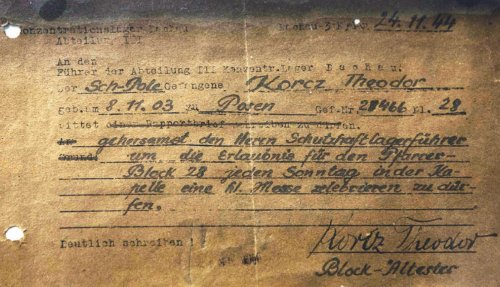 Konzentrationslager Dachau
Abteilung III
Dachau 3 K, 24.11.44
An den
Führer der Abteilung III Konzentr.Lager D a c h a u.
Der Sch-Pole Gefangene Korcz Theodor
geb.am 8.11.03 zu Posen Gef-Nr. 28466 Bl. 28
bittet eine Rapportbrief schreiben zu dürfen.
gehorsamst den Herrn Schutzhaftlagerführer
um die Erlaubnis für den Pfarrer-
Block 28 jeden Sonntag in der Ka-
pelle eine hl. Messe zelebrieren zu dür-
fen.
Deutlich schreiben !
Korcz Theodor
Block-Ältester